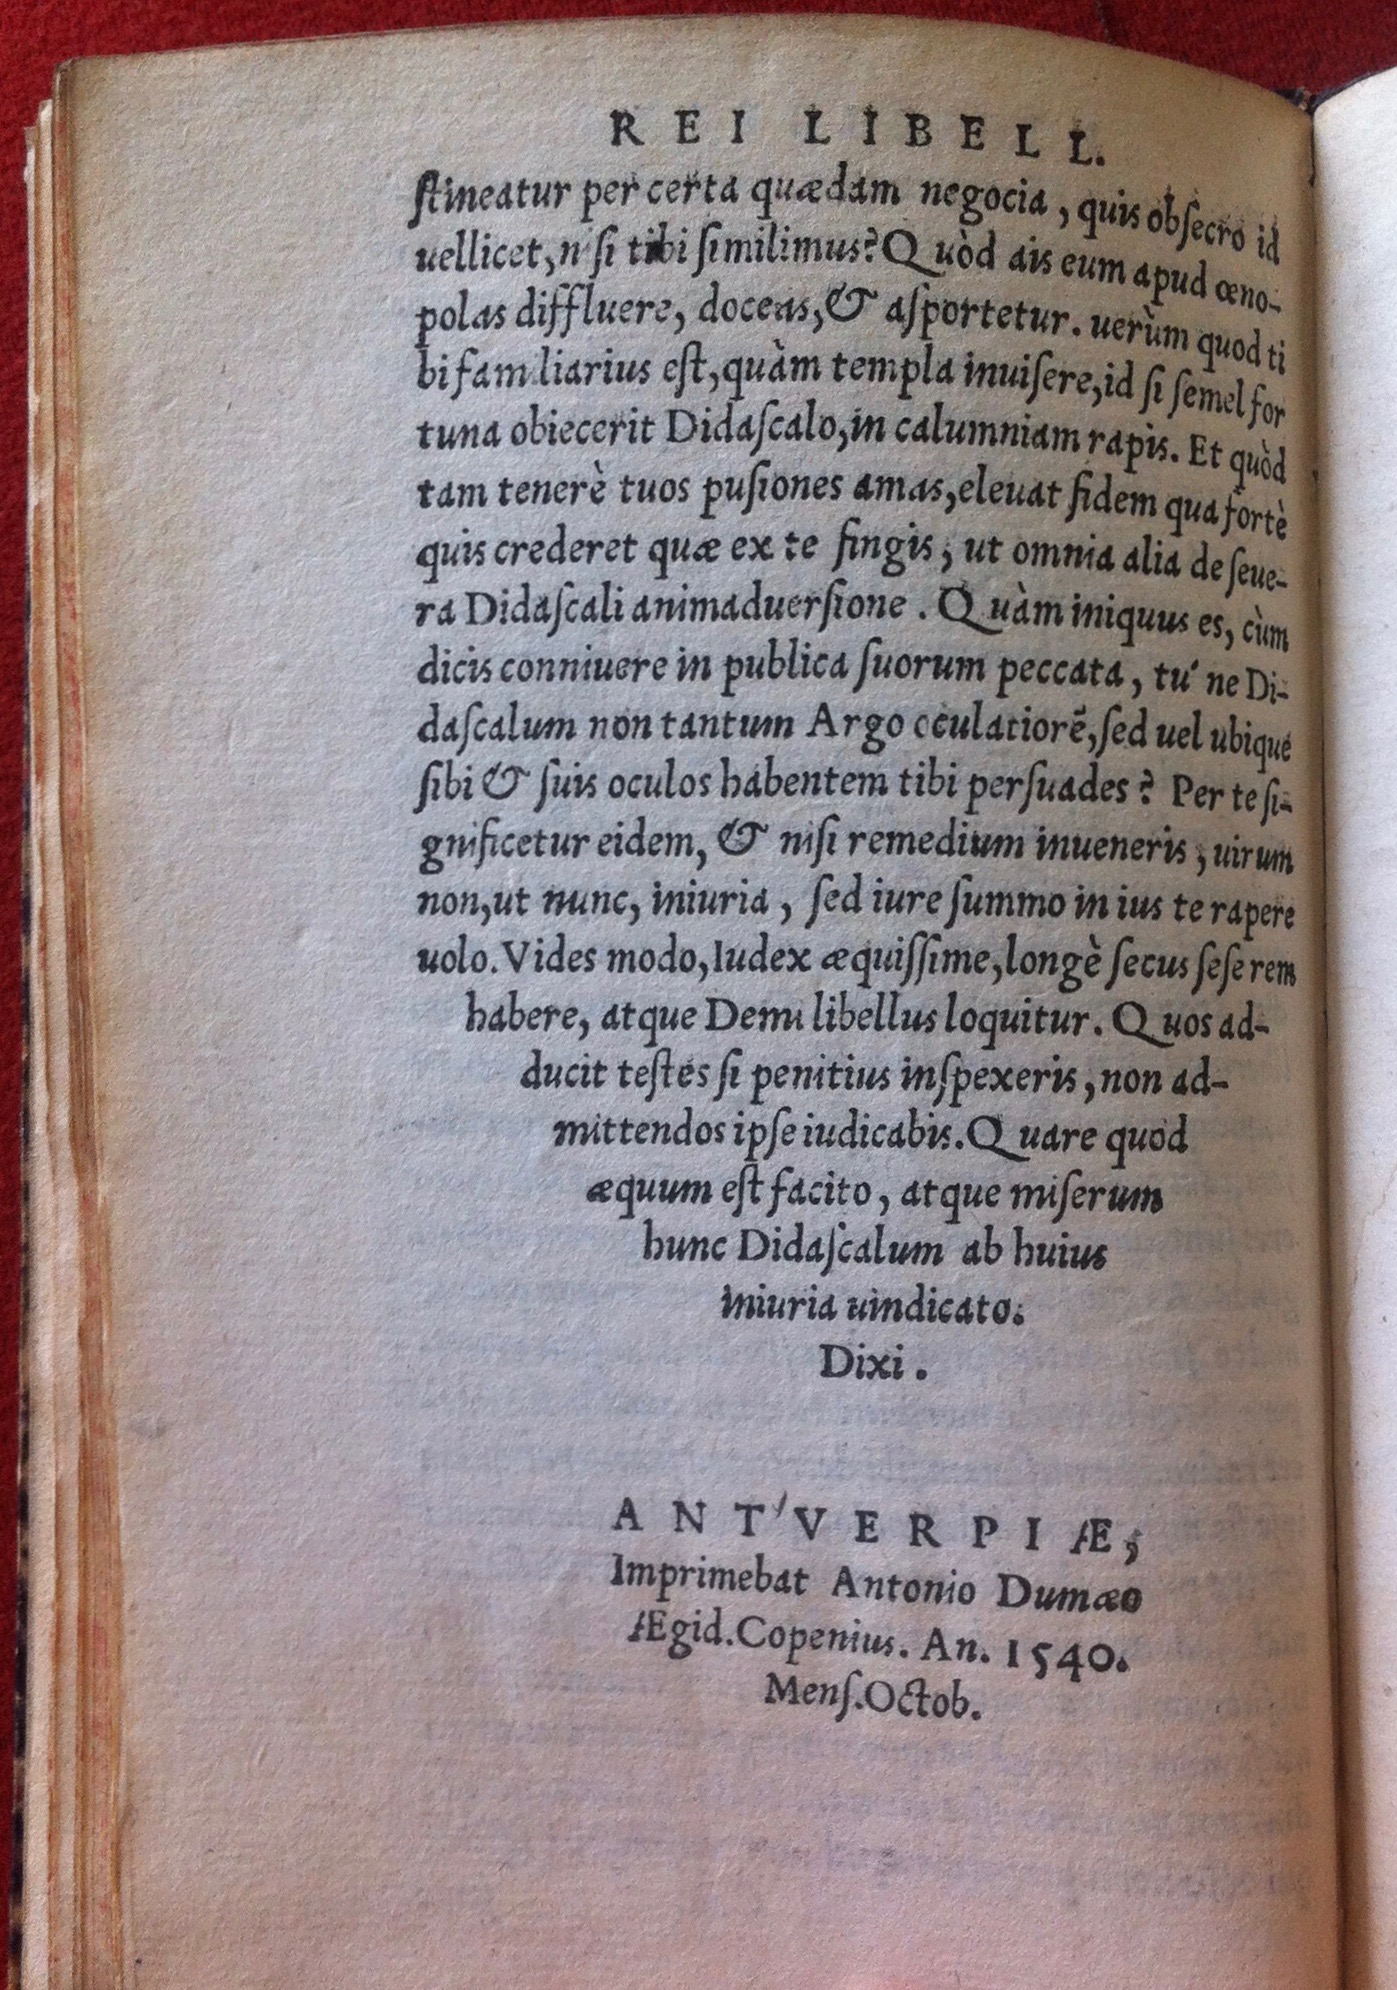 REI LIBELL.
ſtineatur per certa quædam negocia, quis obſecro id
uellicet, n ſi tibi ſimilimus? Quòd ais eum apud œno-
polas diffluere, doceas, & aſportetur. uerùm quod ti
bi fam liarius eſt, quàm templa inuiſere, id ſi ſemel for
tuna obiecerit Didaſcalo, in calumniam rapis. Et quòd
tam tenerè tuos puſiones amas, eleuat fidem qua fortè
quis crederet quæ ex te fingis, ut omnia alia de ſeue-
ra Didaſcali animaduerſione. Quàm iniquus es, cùm
dicis conniuere in publica ſuorum peccata, tú ne Di-
daſcalum non tantum Argo oculatiorē, ſed uel ubique
ſibi & ſuis oculos habentem tibi perſuades? Per te ſi-
gnificetur eidem, & niſi remedium inueneris, uirum
non, ut nunc, iniuria, ſed iure ſummo in ius te rapere
uolo. Vides modo, Iudex æquiſſime, longè ſecus ſeſe rem
habere, atque Demi libellus loquitur. Quos ad-
ducit teſtes ſi penitius inſpexeris, non ad-
mittendos ipſe iudicabis. Quare quod
æquum eſt facito, atque miſerum
hunc Didaſcalum ab huius
iniuria uindicato.
Dixi.
ANTVERPIÆ,
Imprimebat Antonio Dumæo
Ægid. Copenius. An. 1540.
Menſ. Octob.